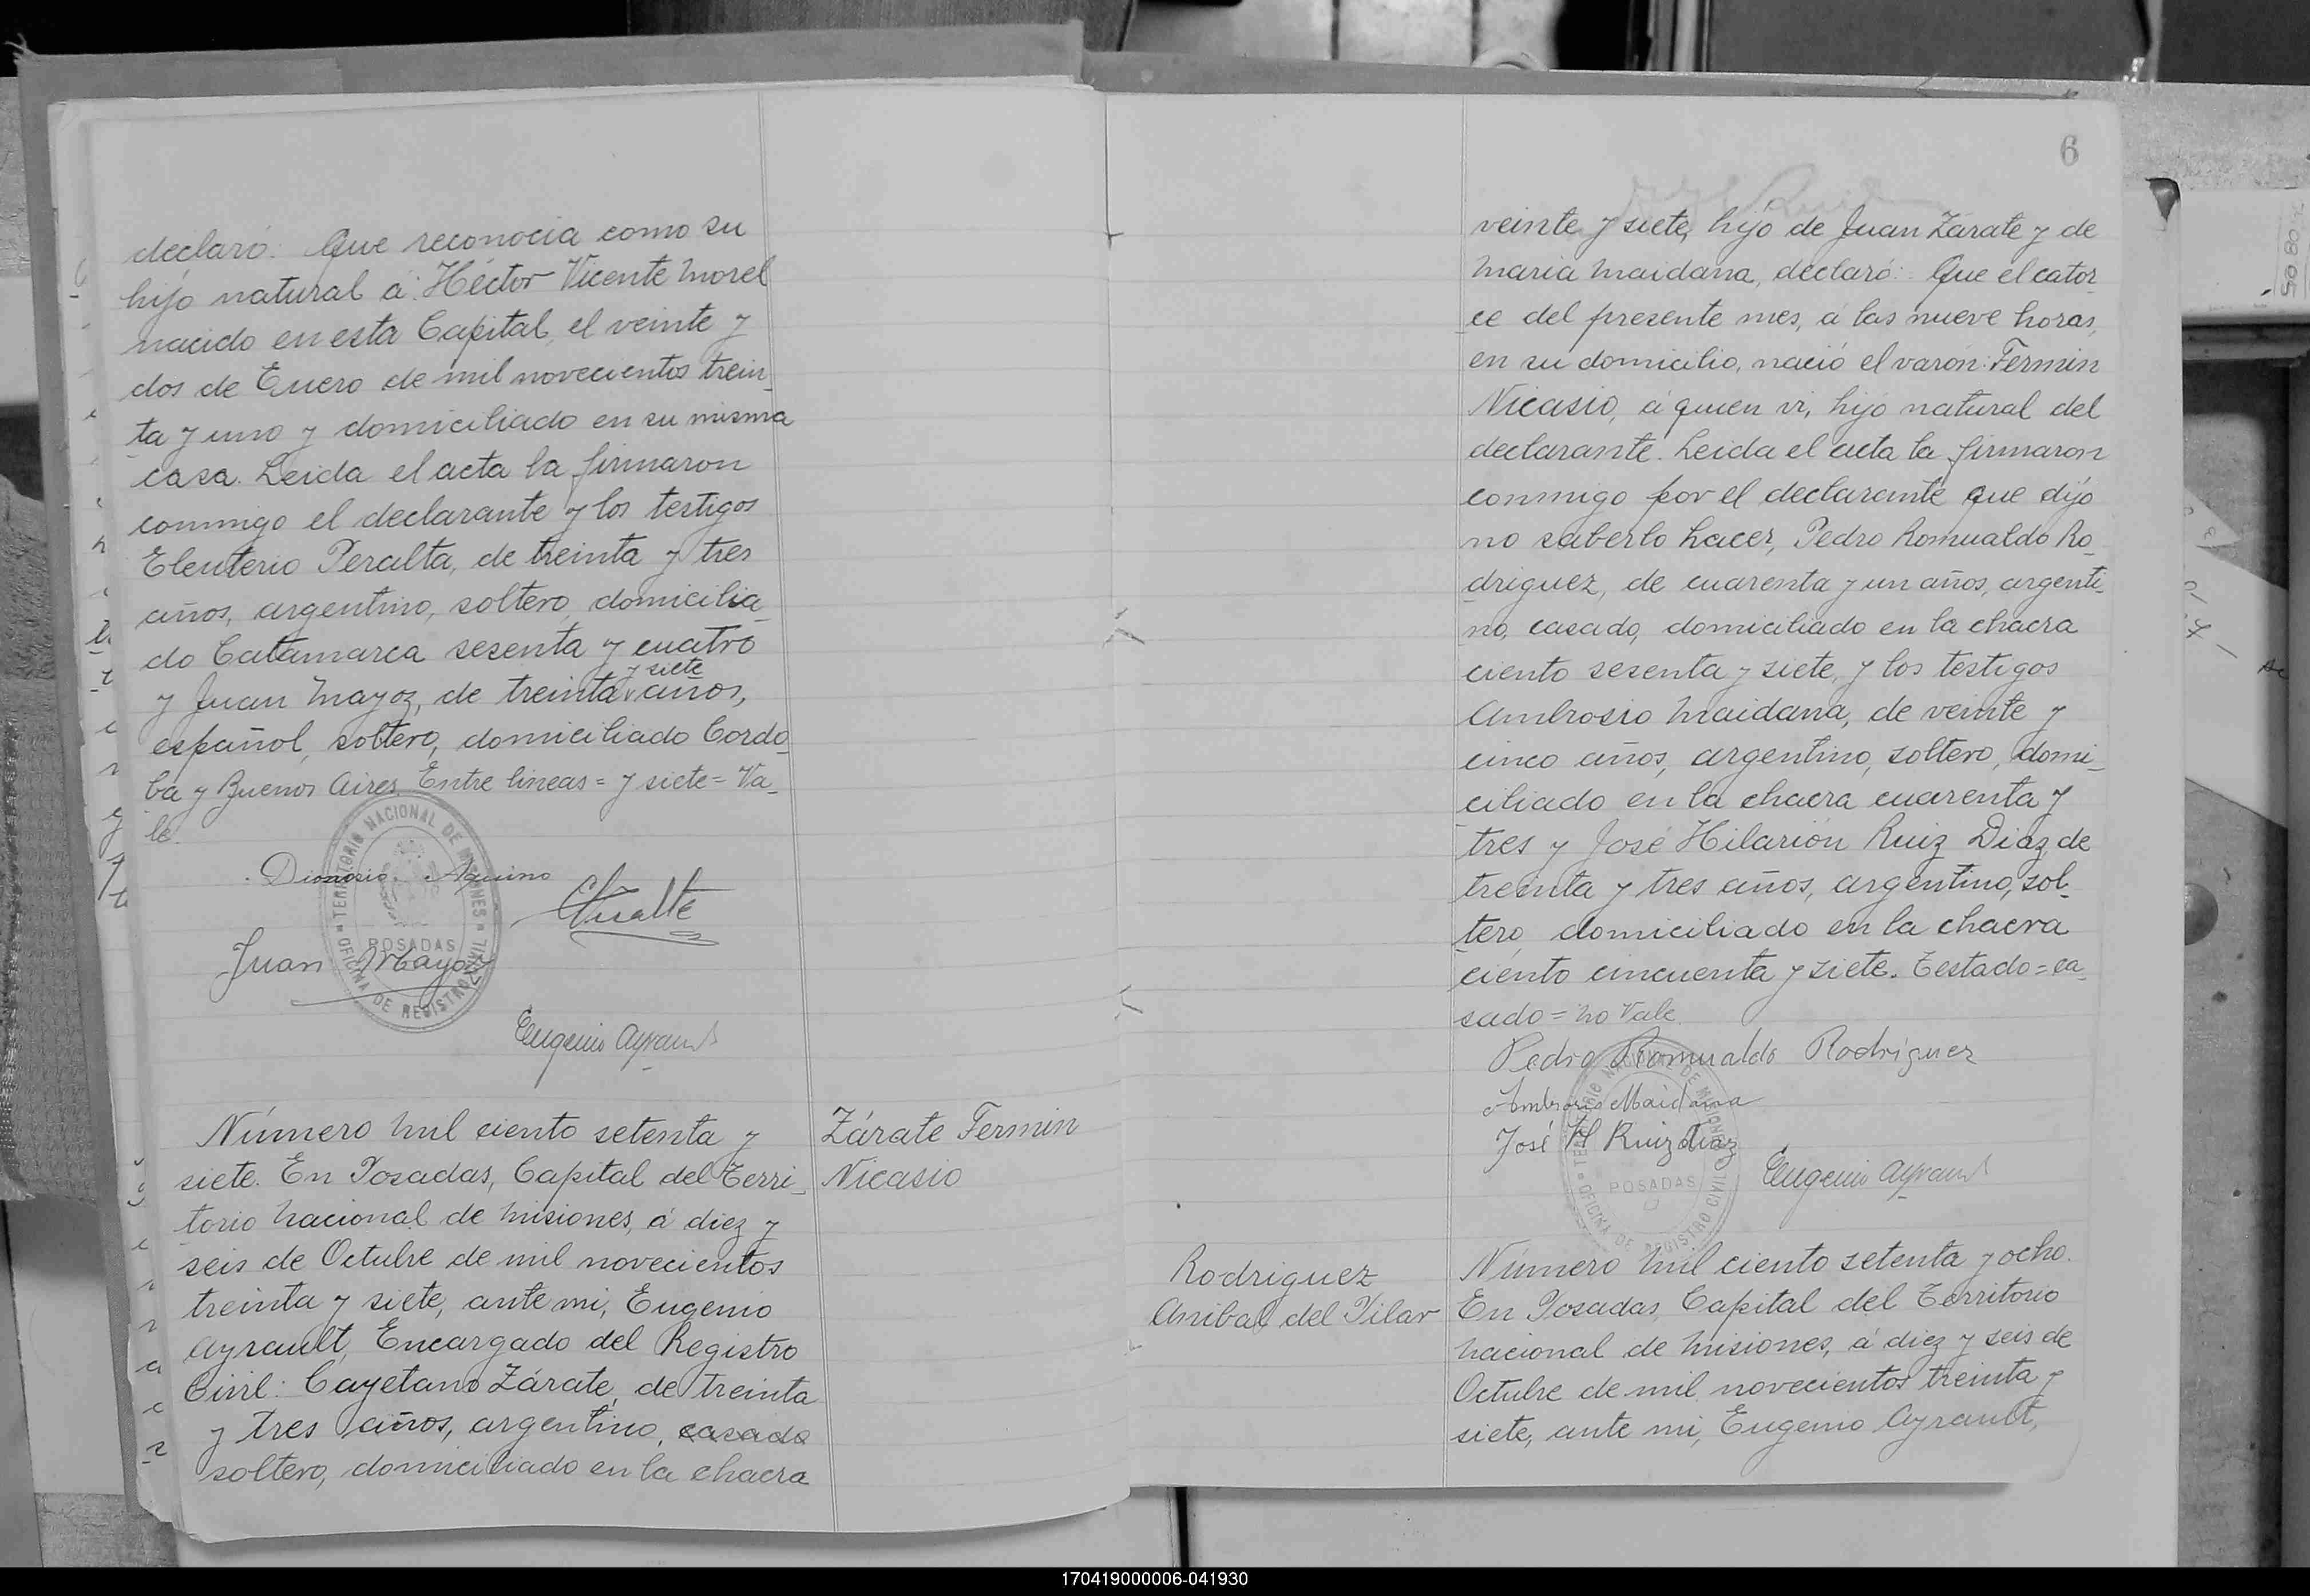 declaró: Que reconocia como su
hijo natural á: Héctor Vicente Morel
nacido en esta Capital, el veinte y
dos de Enero de mil novecientos trein_
ta y uno y domiciliado en su misma
casa. Leida el acta la firmaron
conmigo el declarante y los testigos
Eleuterio Peralta, de treinta y tres
años, argentino, soltero, domicilia_
do Catamarca sesenta y cuatro
y siete
y Juan Mayoz, de treinta años,
español, soltero, domiciliado Cordo_
ba y Buenos Aires. Entre lineas = y siete = Va_
le.
Dionosio Aquino
Juan Mayoz
TERRITORIO NACIONAL DE MISIONES
POSADAS
OFICINA DE REGISTRO CIVIL
Eugenio Ayrault
Zárate Fermin
Nicasio
Número Mil ciento setenta y
siete. En Posadas, Capital del Terri_
torio Nacional de Misiones, á diez y
seis de Octubre de mil novecientos
treinta y siete, ante mi, Eugenio
Ayrault, Encargado del Registro
Civil: Cayetano Zárate, de treinta
y tres años, argentino, casado
soltero, domiciliado en la chacra
6
veinte y siete, hijo de Juan Zárate y de
Maria Maidana, declaró: Que el cator_
ce del presente mes, á las nueve horas,
en su domicilio, nació el varón: Fermin
Nicasio, á quien vi, hijo natural del
declarante. Leida el acta la firmaron
conmigo por el declarante que dijo
no saberlo hacer, Pedro Romualdo Ro_
driguez, de cuarenta y un años, argenti_
no, casado, domiciliado en la chacra
ciento sesenta y siete, y los testigos
Ambrosio Maidana, de veinte y
cinco años, argentino, soltero, domi_
ciliado en la chacra cuarenta y
tres y José Hilarión Ruiz Diaz, de
treinta y tres años, argentino, sol_
tero, domiciliado en la chacra
ciento cincuenta y siete. Testado = ca_
sado = No Vale.
Pedro Romualdo Rodriguez
Ambrosio Maidana
José H Ruiz Diaz
TERRITORIO NACIONAL DE MISIONES
POSADAS
OFICINA DE REGISTRO CIVIL
Eugenio Ayrault
Rodriguez
Anibal del Pilar
Número Mil ciento setenta y ocho.
En Posadas, Capital del Territorio
Nacional de Misiones, á diez y seis de
Octubre de mil novecientos treinta y
siete, ante mi, Eugenio Ayrault,
170419000006-041930